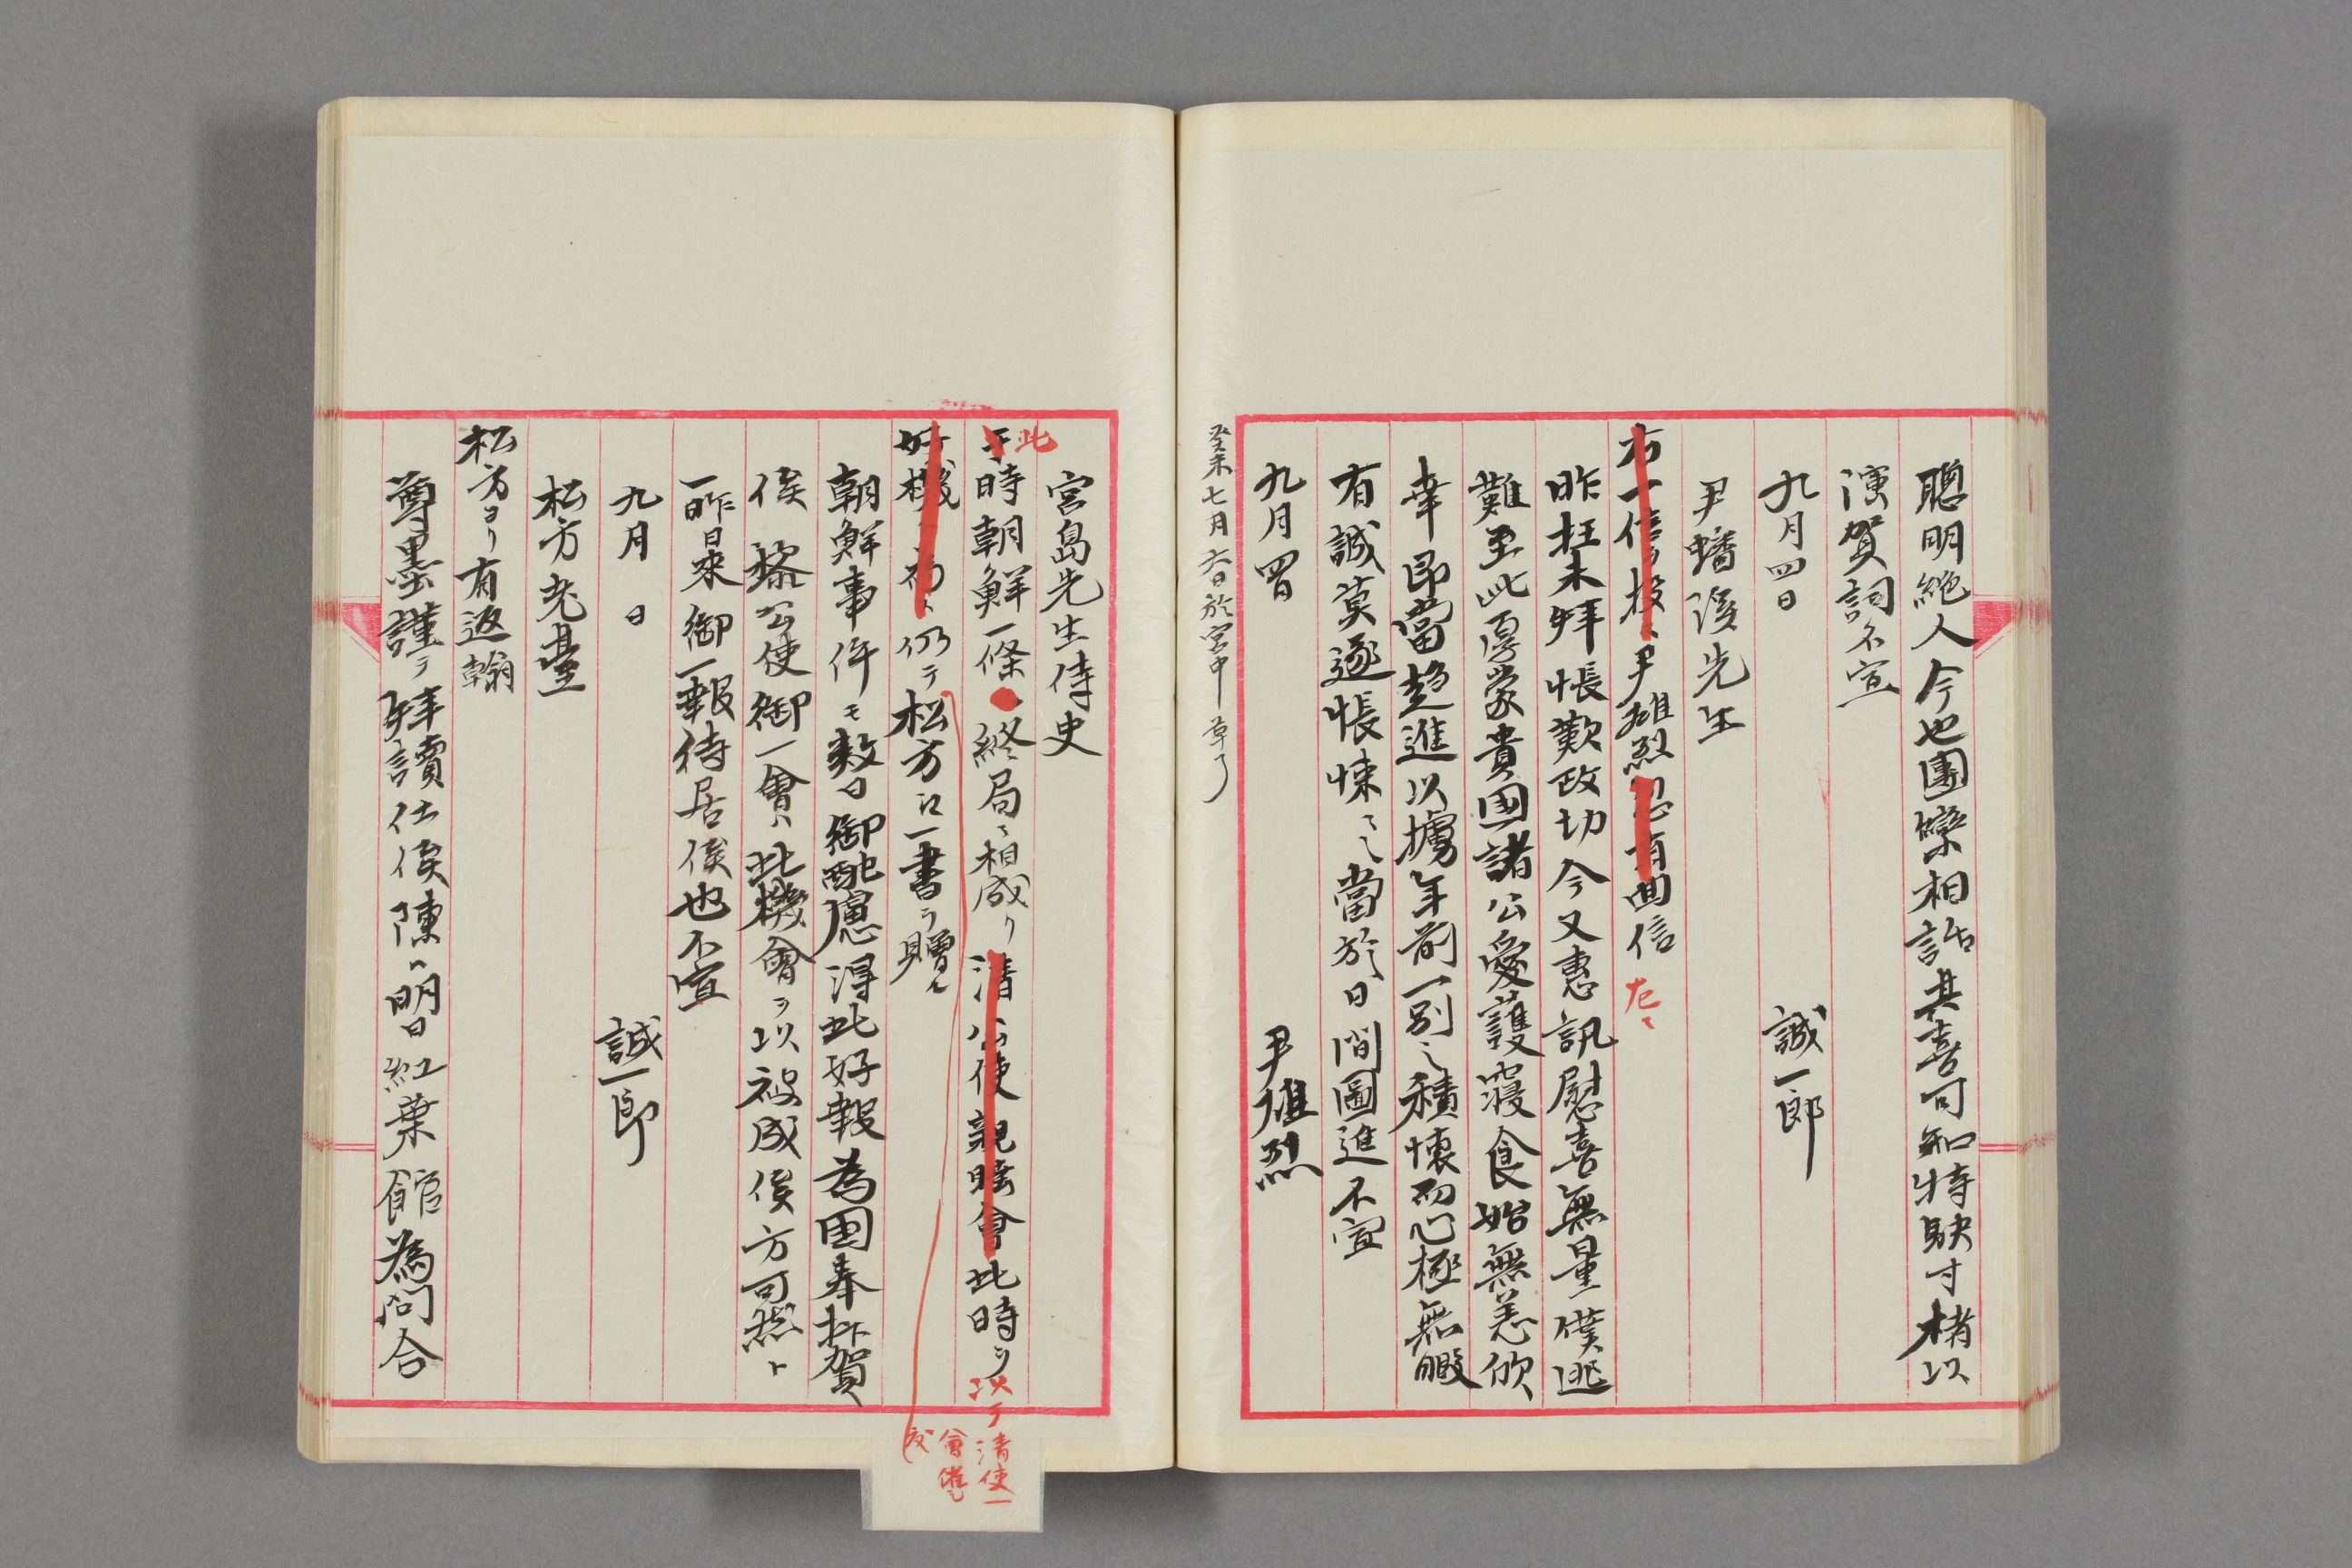 聰明絶人今也團欒相話其喜可知特馳寸楮以
演賀詞不宣
九月四日 誠一郎
尹蟠渓先生
右一信ヲ投ス尹雄烈忽有回信左ニ
昨枉未拜悵歎政切今又惠訊慰喜無量僕逃
難至此厚蒙貴國諸公愛護寢食姑無恙欣
幸即當趍進以攄年前一別之積懷而心極無暇
有誠莫遂悵悚々當於日間圖進不宣
九月四日 尹雄烈
癸未七月六日於宮中草了
宮島先生侍史
此
于時朝鮮一條終局ニ相成リ清公使親睦會此時ヲ以テ清使一
會催シ
度
好機 仍テ松方江一書ヲ贈ル
朝鮮事件モ数日御配慮得此好報為国奉拝賀
候 黎公使御一會ハ此機會ヲ以被成候方可然ト
一昨日来御一報待居候也不宣
九月 日 誠一郎
松方老臺
松方ヨリ有返翰
尊墨謹テ拜讀仕候陳ハ明日紅葉館為問合